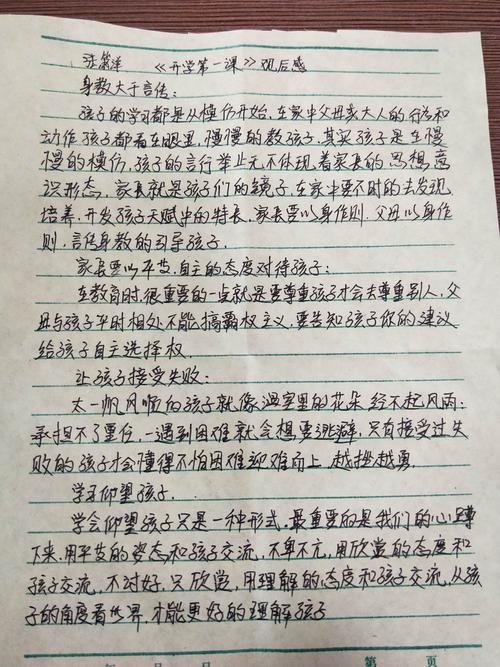 《开学第一课》观后感
身教大于言传：
孩子的学习都是从模仿开始，在家中父母亲大人的行为和
动作，孩子都看在眼里，慢慢的教孩子，其实孩子是在慢
慢的模仿，孩子的言行举止无不体现着家长的思想，意
识形态，家长就是孩子们的镜子，在家中要不时的去发现
培养，开发孩子天赋中的特长，家长要以身作则，父母以身作
则，言传身教的引导孩子。
家长要以平等、自主的态度对待孩子：
在教育时，很重要的一点就是要尊重孩子才会去尊重别人，父
母与孩子平时相处不能搞霸权主义，要告知孩子你的建议
给孩子自主选择权。
让孩子接受失败：
太一帆风顺的孩子就像温室里的花朵经不起风雨；
承担不了重任，一遇到困难就会想要逃避，只有接受过失
败的孩子才会懂得不怕困难迎难而上，越挫越勇。
学习仰望孩子。
学会仰望孩子只是一种形式，最重要的是我们的心蹲
下来，用平等的姿态和孩子交流，不卑不亢，用欣赏的态度和
孩子交流，不讨好，只欣赏，用理解的态度和孩子交流，从孩
子的角度看世界，才能更好的理解孩子。
年 月 日 第 页